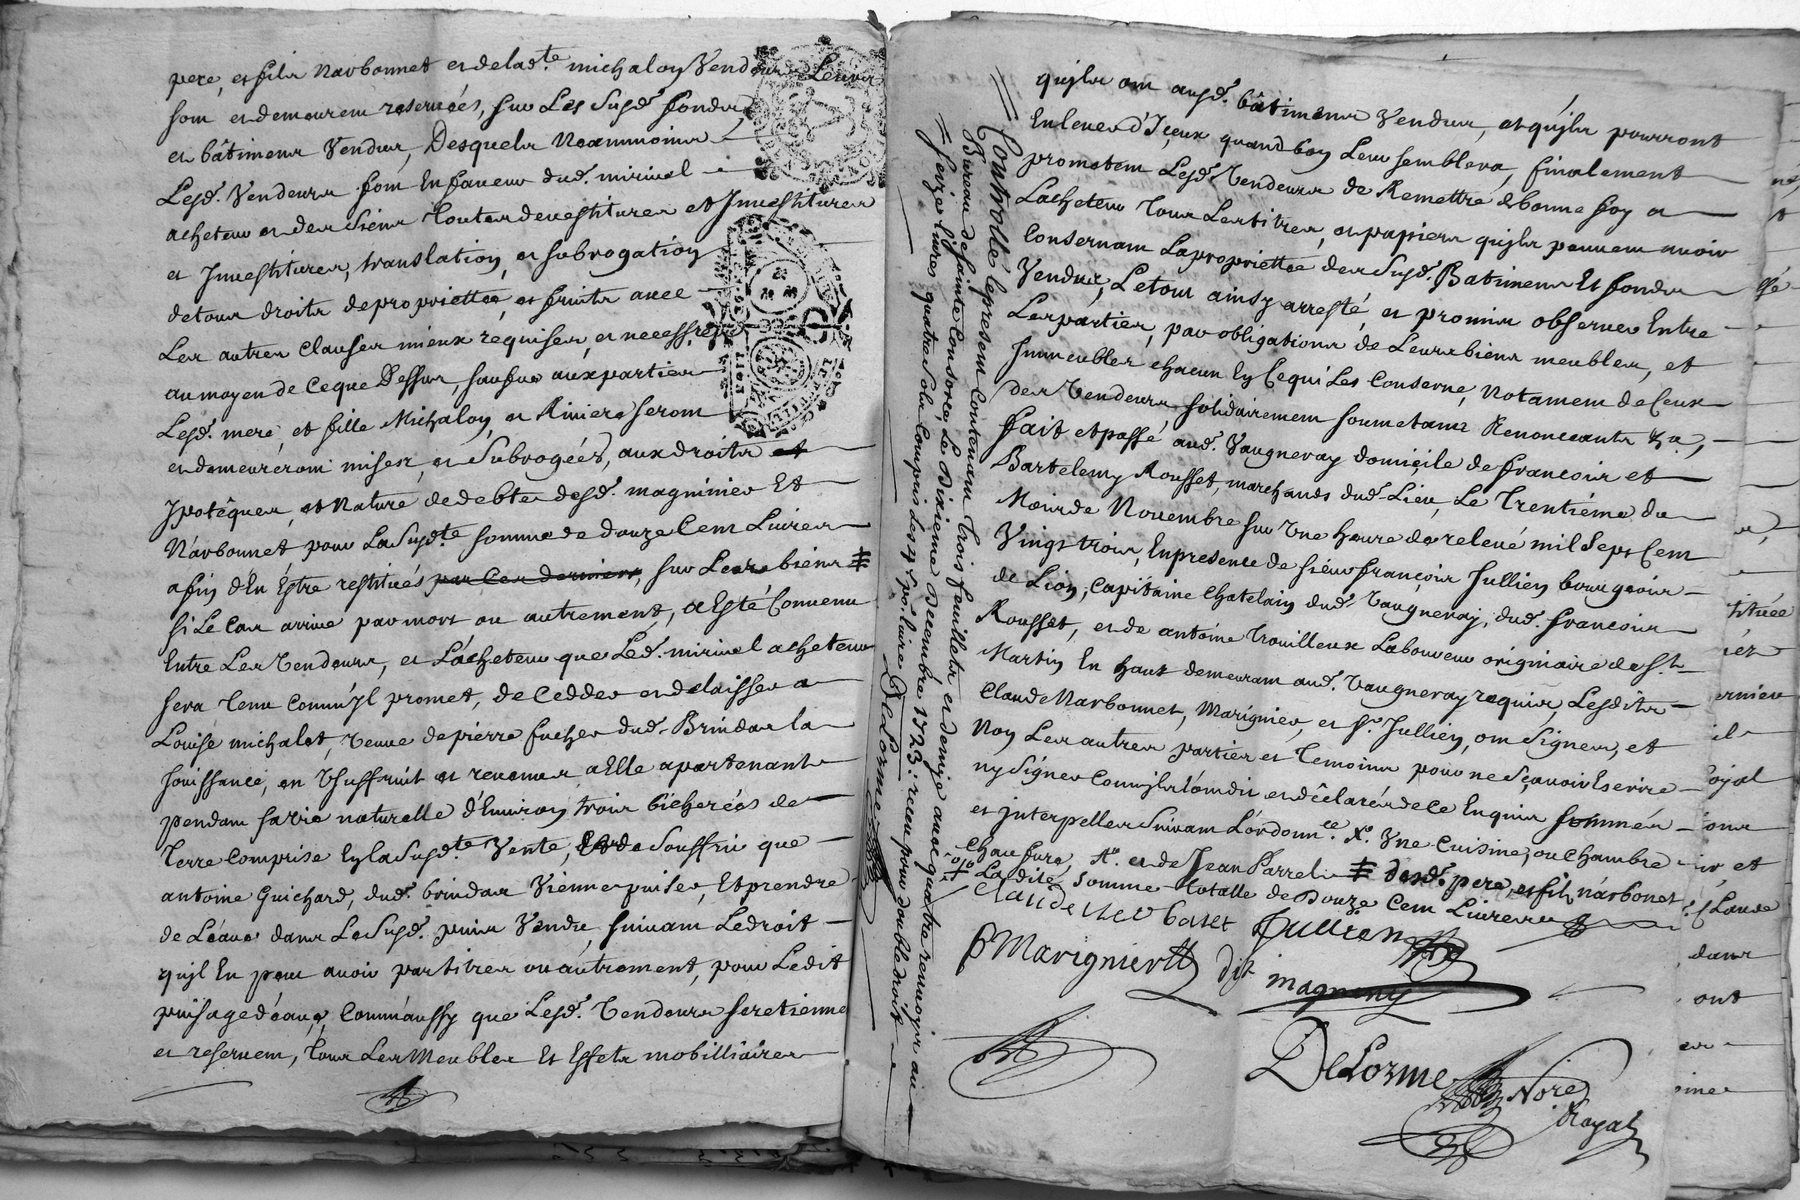 pere, et fils Narbonnet et delad.te michaloy Vendeurs Leurs
sont et demeurent reservées, sur Les Susd.s fonds,
et bâtimens Vendus, Desquels Neammoins
Lesd.s Vendeurs font En faveur dud.t mirival
acheteur et des Siens Toutes devestitures et Jnvestitures
et Jnvestitures, translation, et subrogation
de tous droits de proprietté, et fruits avec
Les autres Clauses mieux requises, et necessres
au moyen de Ceque Dessus, sauf aux parties
Lesd.s mere, et fille Michaloy, et Riviere seront
et demeureront mises, et Subrogées, aux droits et
Jpotêques, et Nature de debte desd.s magninier Et
Narbonnet pour La Susd.te somme de douze Cent Livres
afin d'En Estre restitués par Ces derniers, sur Leurs biens #
si Le Cas arrive par mort ou autrement, a Esté Convenu
Entre Les Vendeurs, et L'acheteur que Led.t mirival acheteur
sera Tenu Comm'jl promet, de Cedder et delaisser a
Louise michalet, Veuve de pierre fucher dud.t Brindas la
Jouissance, en Usuffruit et revenus, a Elle apartenants
pendant sa vie naturelle d'Environ trois bicherées de
Terre Comprise En la Susd.te Vente, Et de Souffrir que
antoine Guichard, dud.t brindas Vienne puiser, Et prendre
de L'eaue dans Le Susd.t puis Vendu, suivant Le droit
qu'jl En peut avoir par titres ou autrement, pour Ledit
puisage d'eaue, Comm'aussy que Lesd.s Vendeurs se retienne
et reservent, Tous Les Meubles Et Effets mobilliaires
Controllé le present Contenant Trois feuillets et demje avec quatre renvois au
Bureau de Sainte Consorce Le Dixieme Decembre 1723: receu pour double droit
seize Livres quatre Sols Compris Les 4 s. po. Livre DeLorme
qu'jls ont ausd.s bâtimens Vendus, et qu'jls pourront
Enlever d'Jceux quand bon Leur semblera, finalement
promettent Lesd.s Vendeurs de Remettre de bonne foy a
Lacheteur Tous Les titres, et papiers qu'jls peuvent avoir
Consernant La proprietté des Susd.s Batimens Et fonds
Vendus, Le tout ainsy arresté, et promis observer Entre
Les parties, par obligations de Leurs biens meubles, et
Jmmeubles chacun En Cequi Les Conserne, Notament de Ceux
des Vendeurs solidairement soumetant Renonceants &a,
fait et passé aud.t Vaugneray domicile de francois et
Bartelemy Rousset, marchands dud.t Lieu, Le Trentiéme du
Mois de Novembre sur Une heure de relevé mil Sept Cent
Vingt trois, En presence de sieur françois Jullien bourgeois
de Lion, Capitaine Chatelain dud.t Vaugneray, dud.t francois
Rousset, et de antoine Trouilleux Laboureur originaire de St
Martin En haut demeurant aud.t Vaugneray requis, Lesdits
Claude Narbonnet, Marignier, et sr. Jullien, ont Signer, et
Non Les autres parties et Temoins pour ne Sçavoir Escrire
ny Signer Comm'jls l'ont dit et dêclarés de Ce Enquis sommés
et jnterpellés Suivant L'ordonn.ce X.s Une Cuisine, ou Chambre
Chaufure, X.s et de Jean Parrel # desd.s pere, et fils, narbonet
La dite Somme totalle de Douze Cent Livres
Claude Nerbonet Jullien
P Marignier dit magneny
DeLorme Nore
Royal